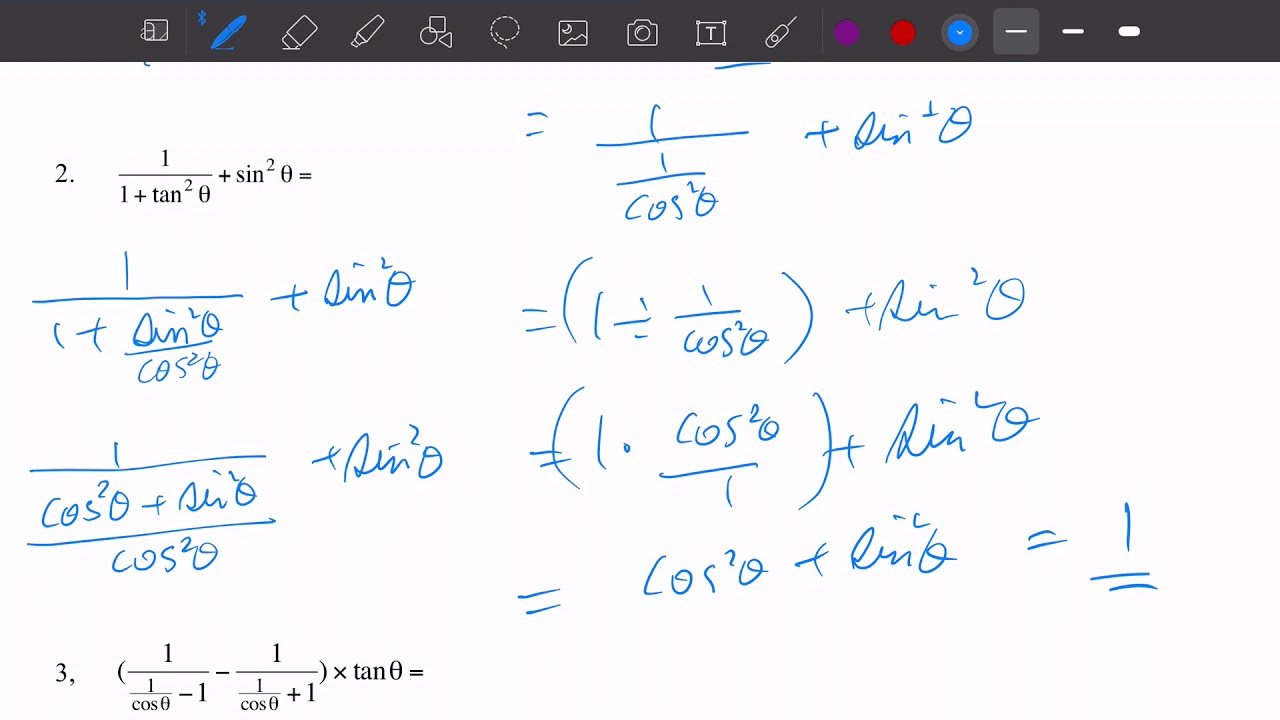 2. 1/(1 + tan² θ) + sin² θ =
1/(1 + sin²θ/cos²θ) + sin²θ
1/((cos²θ + sin²θ)/cos²θ) + sin²θ
= 1/(1/cos²θ) + sin²θ
= (1 ÷ 1/cos²θ) + sin²θ
= (1 · cos²θ/1) + sin²θ
= cos²θ + sin²θ = 1
3, (1/(1/cosθ − 1) − 1/(1/cosθ + 1)) × tan θ =